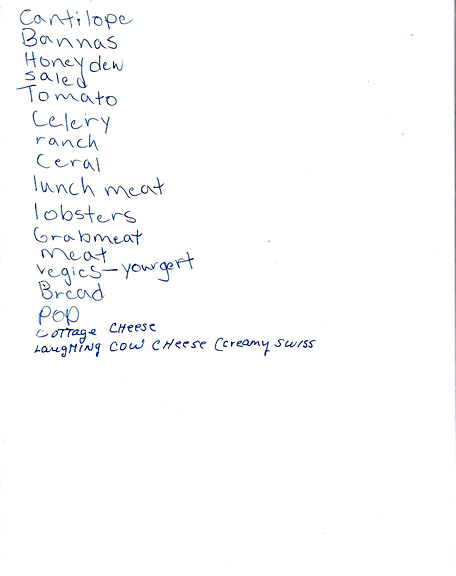 Cantilope
Bannas
Honeydew
saled
Tomato
Celery
ranch
Ceral
lunch meat
lobsters
Crabmeat
meat
vegies-yourgert
Bread
pop
COTTage CHeese
LaugHING COW CHeese (creamy swiss